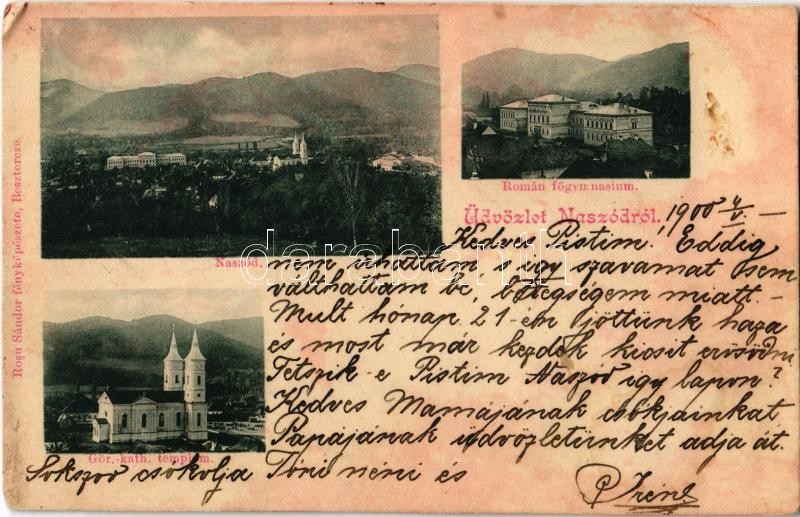 Román főgymnasium.
Üdvözlet Naszódról.
Naszód.
Gör.-kath. templom.
Rosu Sándor fényképészete, Besztercze.
darabanth
1900 4/V. –
Kedves Pistim! Eddig
nem írhattam s így szavamat sem
válthattam be, betegségem miatt. –
Mult hónap 21-én jöttünk haza
és most már kezdek kicsit erősödni
Tetszik-e Pistim Naszod így lapon?
Kedves Mamájának csókjainkat
Papájának üdvözletünket adja át.
Sokszor csókolja Tóni néni és
Irén